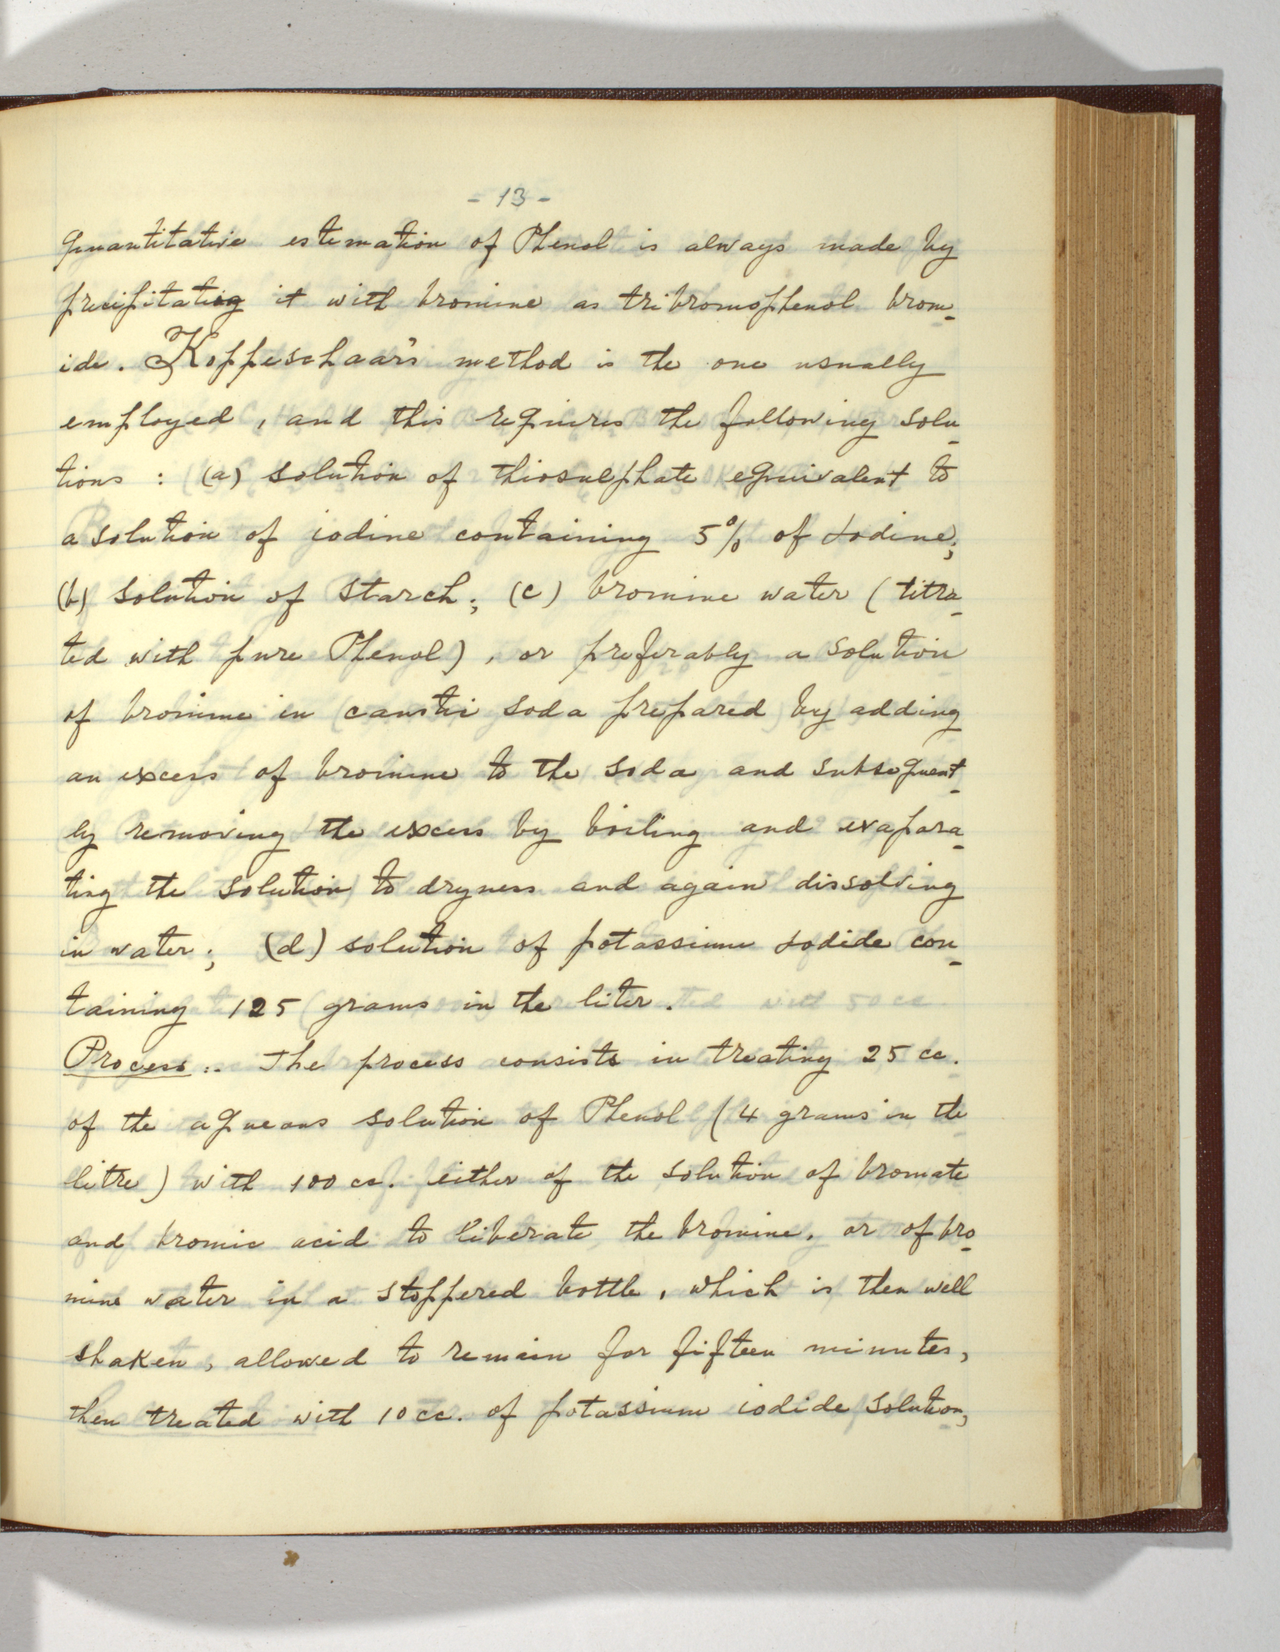 - 13 -
quantitative estimation of Phenol is always made by
precipitating it with bromine as tribromophenol brom-
ide. Koppeschaar's method is the one usually
employed, and this requires the following solu-
tions : (a) solution of thiosulphate equivalent to
a solution of iodine containing 5% of Iodine;
(b) solution of starch; (c) bromine water (titra-
ted with pure Phenol), or preferably a solution
of bromine in caustic soda prepared by adding
an excess of bromine to the soda and subsequent-
ly removing the excess by boiling and evapora-
ting the solution to dryness and again dissolving
in water; (d) solution of potassium Iodide con-
taining 125 grams in the liter.
Process :- The process consists in treating 25 cc.
of the aqueous solution of Phenol (4 grams in the
litre) with 100 cc. either of the solution of bromate
and bromic acid to liberate the bromine, or of bro-
mine water in a stoppered bottle, which is then well
shaken, allowed to remain for fifteen minutes,
then treated with 10 cc. of potassium iodide solution,